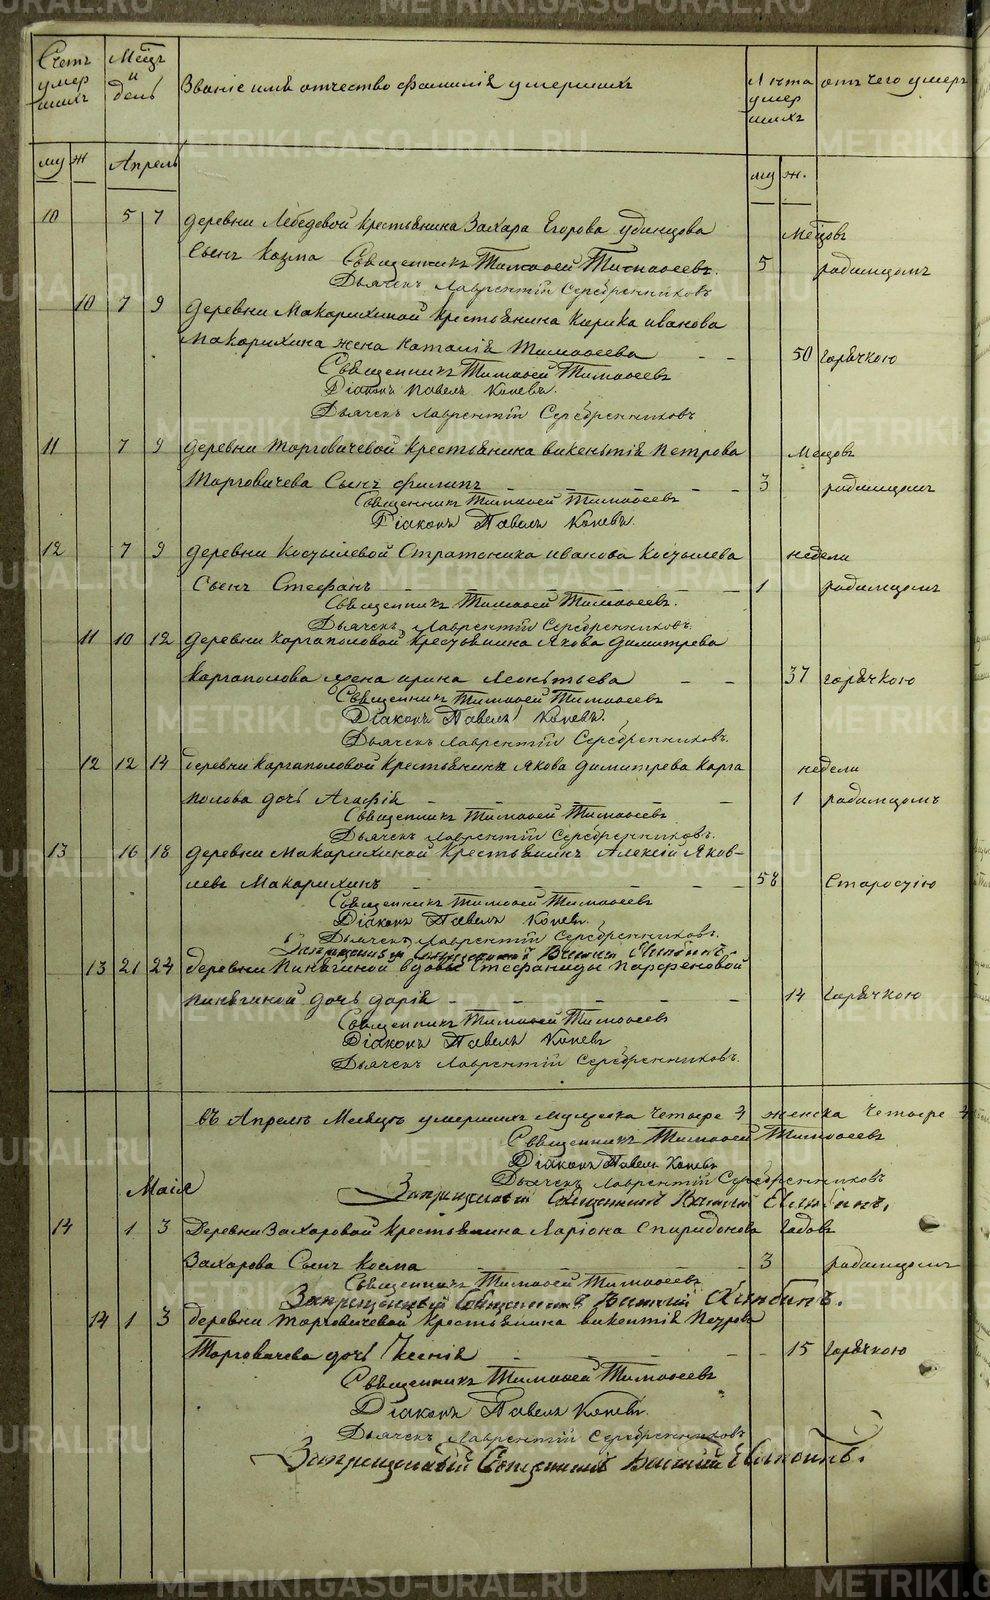 Счетъ умер шихъ
Мѣцъ и день
Званіе имя отчество фамилія умершихъ
Лѣта умер шихъ
отъ чего умеръ
му ж Апрель му ж.
10 5 7 деревни Лебедовой крестьянина Захара Егорова Удинцова Мѣцовъ
Сынъ Козма Священникъ Тимофей Тимофеевъ. 5 родимцомъ
Дьячекъ Лаврентій Серебренниковъ
10 7 9 деревни Макарихиной крестьянина Кирика иванова
Макарихина жена наталія Тимофеева 50 горячкою
Священникъ Тимофей Тимофеевъ
Діаконъ Павелъ Коневъ.
Дьячекъ Лаврентій Серебренниковъ
11 7 9 деревни Торговичевой крестьянина викентія петрова Мѣцовъ
Торговичева Сынъ филипъ 3 родимцомъ
Священникъ Тимофей Тимофеевъ
Діаконъ Павелъ Коневъ.
12 7 9 деревни Костылевой Стратоника иванова Костылева недели
Сынъ Стефанъ 1 родимцомъ
Священникъ Тимофей Тимофеевъ.
Дьячекъ Лаврентій Серебренниковъ.
11 10 12 деревни Каргаполовой крестьянина Якова Димитрева
Каргаполова жена ирина Леонтьева 37 горячкою
Священникъ Тимофей Тимофеевъ
Діаконъ Павелъ Коневъ.
Дьячекъ Лаврентій Серебренниковъ.
12 12 14 деревни Каргаполовой крестьянинъ Якова Димитрева Карга недели
полова дочь Агафія 1 родимцомъ
Священникъ Тимофей Тимофеевъ
Дьячекъ Лаврентій Серебренниковъ.
13 16 18 деревни Макарихиной Крестьянинъ Алексій Яков-
левъ Макарихинъ 58 Старостію
Священникъ Тимофей Тимофеевъ
Діаконъ Павелъ Коневъ.
Дьячекъ Лаврентій Серебренниковъ.
Запрещенный священникъ
13 21 24 деревни Пинягиной вдовы Стефаниды Парфеновой
пинягиной дочь дарія 14 горячкою
Священникъ Тимофей Тимофеевъ
Діаконъ Павелъ Коневъ
Дьячекъ Лаврентій Серебренниковъ.
въ Апреле Месяце умершихъ мущеска четыре 4 женска четыре 4
Священникъ Тимофей Тимофеевъ
Діаконъ Павелъ Коневъ
Дьячекъ Лаврентій Серебренниковъ
Запрещенный Священникъ
Маія
14 1 3 Деревни Захаровой крестьянина Ларіона Спиридонова Годовъ
Захарова Сынъ Косма 3 родимцомъ
Священникъ Тимофей Тимофеевъ
Запрещенный Священникъ
14 1 3 деревни Торговичевой крестьянина викентія Петрова
Торговичева дочь Ксенія 15 горячкою
Священникъ Тимофей Тимофеевъ
Діаконъ Павелъ Коневъ.
Дьячекъ Лаврентій Серебренниковъ
Запрещенный Священникъ
METRIKI.GASO-URAL.RU